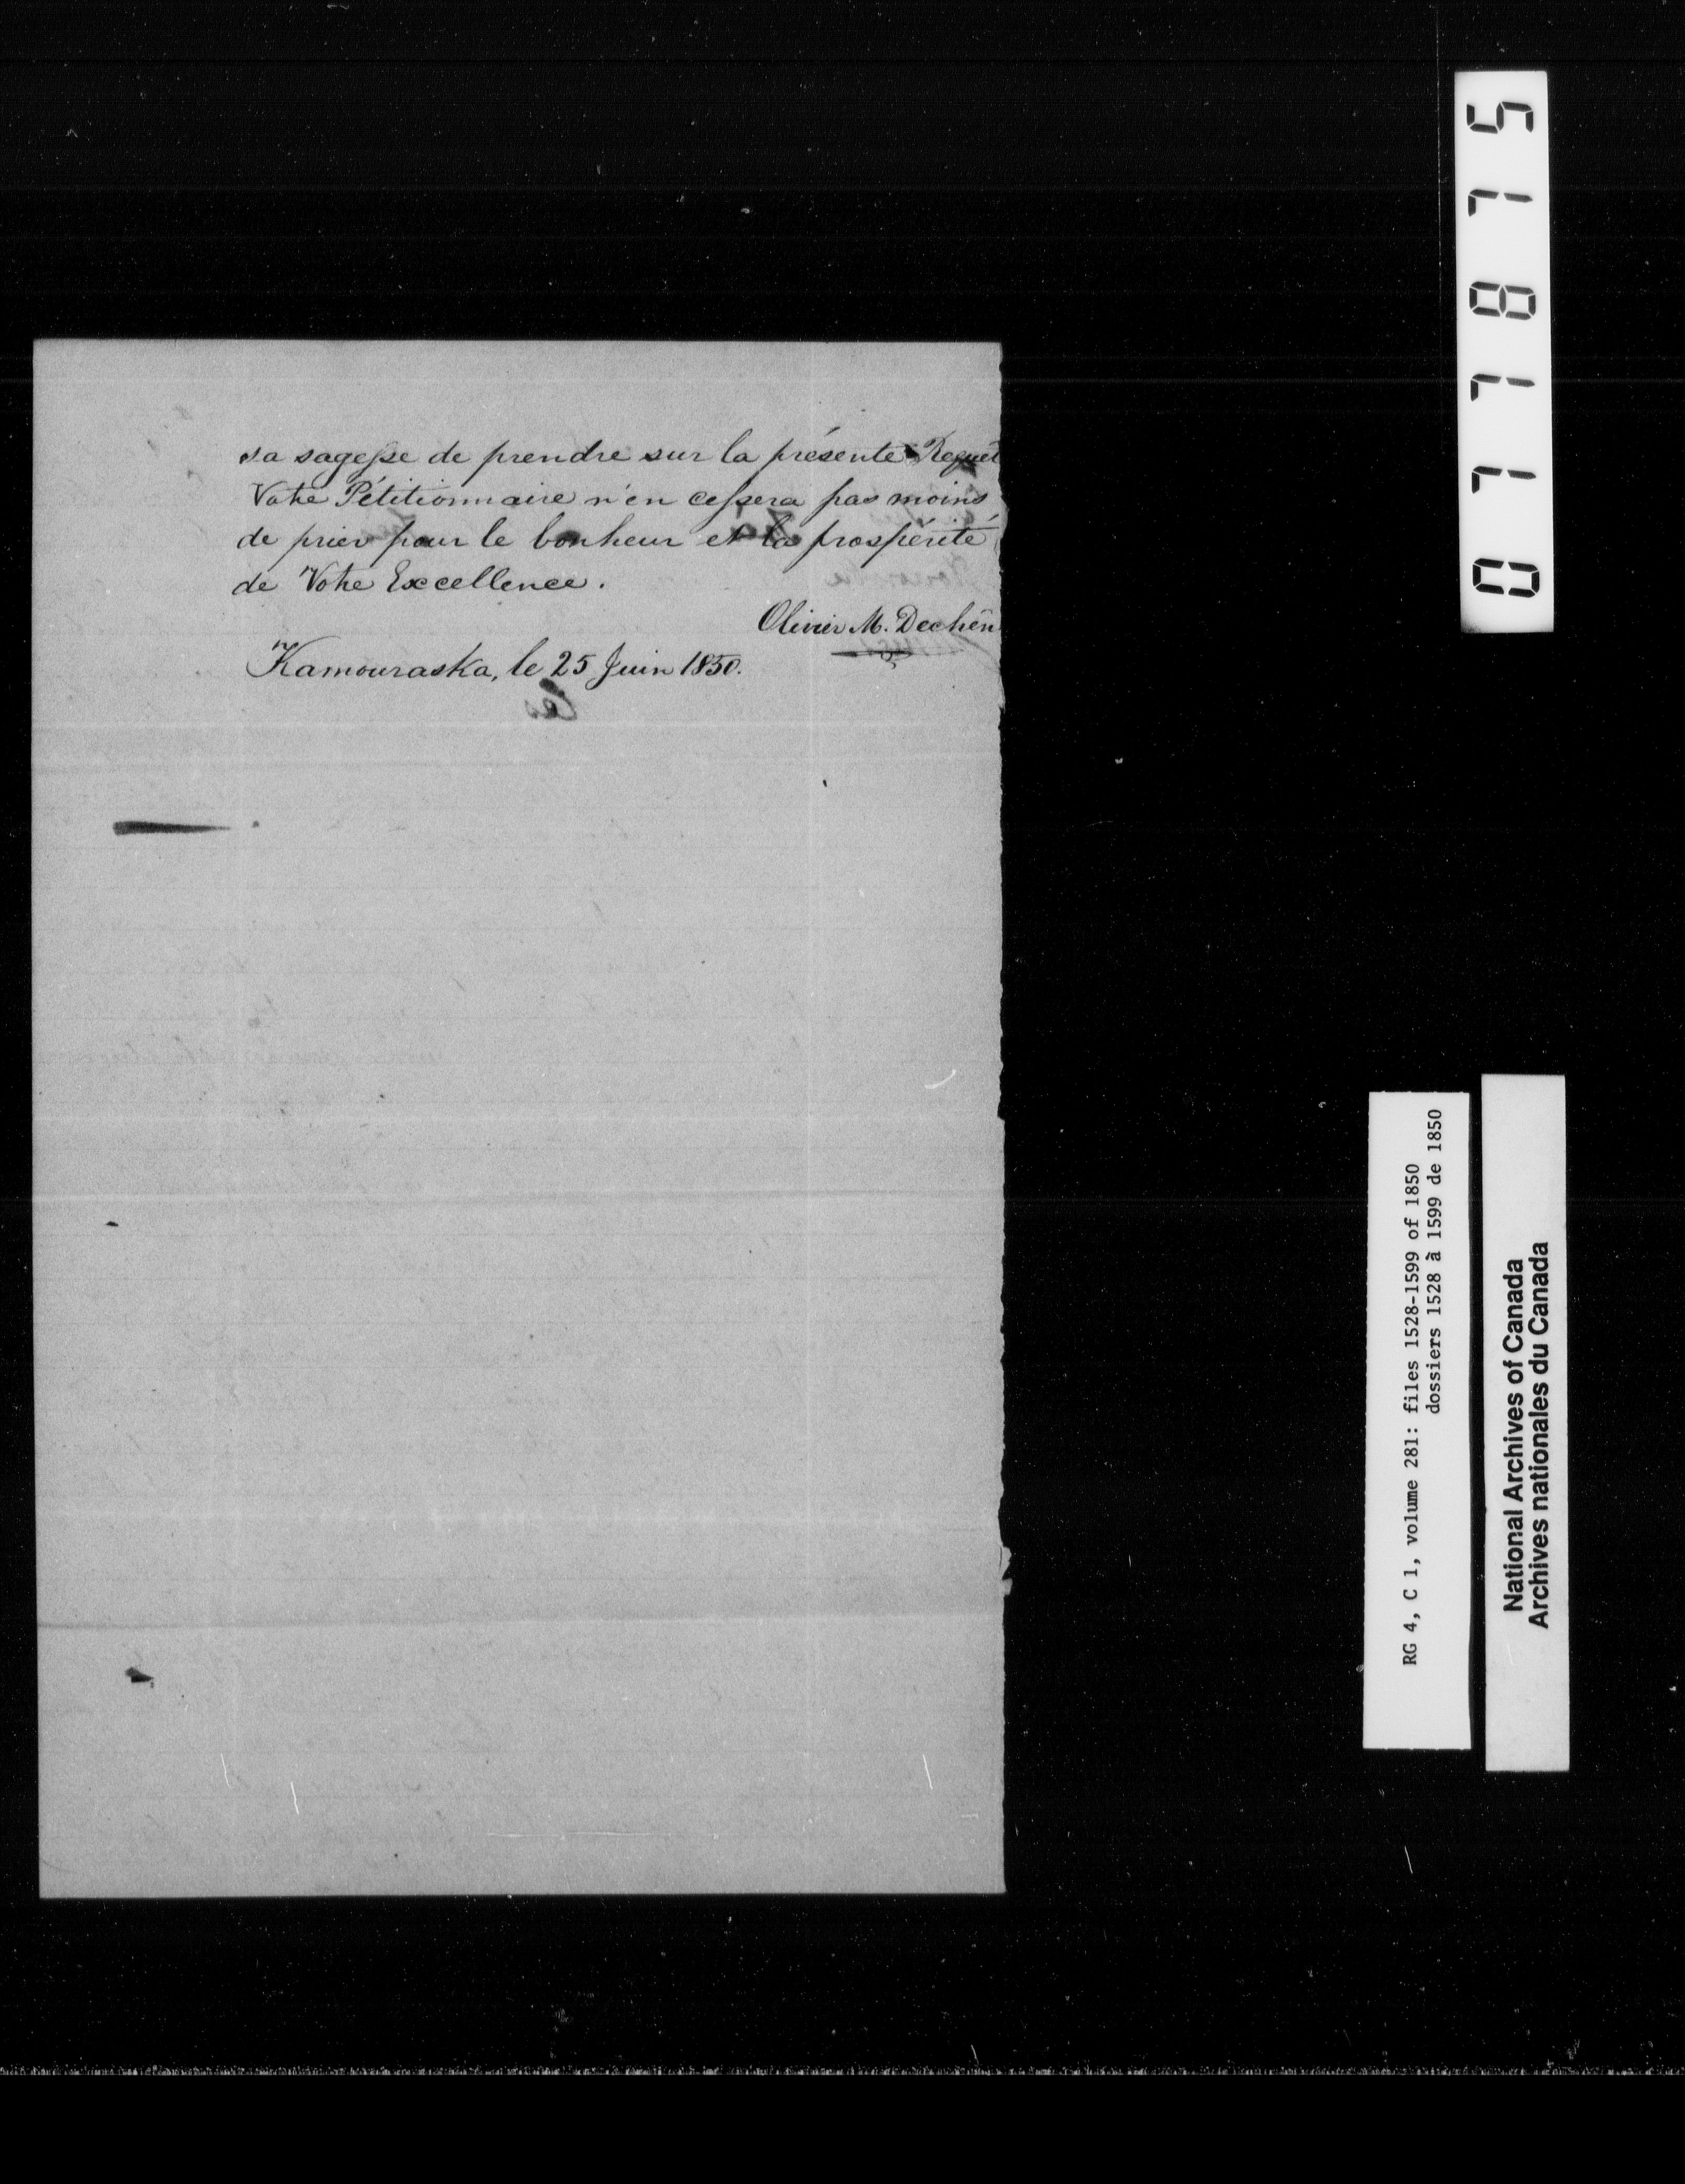 sa sagesse de prendre sur la présente Requêt
Votre Pétitionnaire n'en cessera pas moins
de prier pour le bonheur et la prospérité
de Votre Excellence.
Olivier M. Dechên
Kamouraska, le 25 Juin 1850.
077875
RG 4, C 1, volume 281: files 1528-1599 of 1850
dossiers 1528 à 1599 de 1850
National Archives of Canada
Archives nationales du Canada